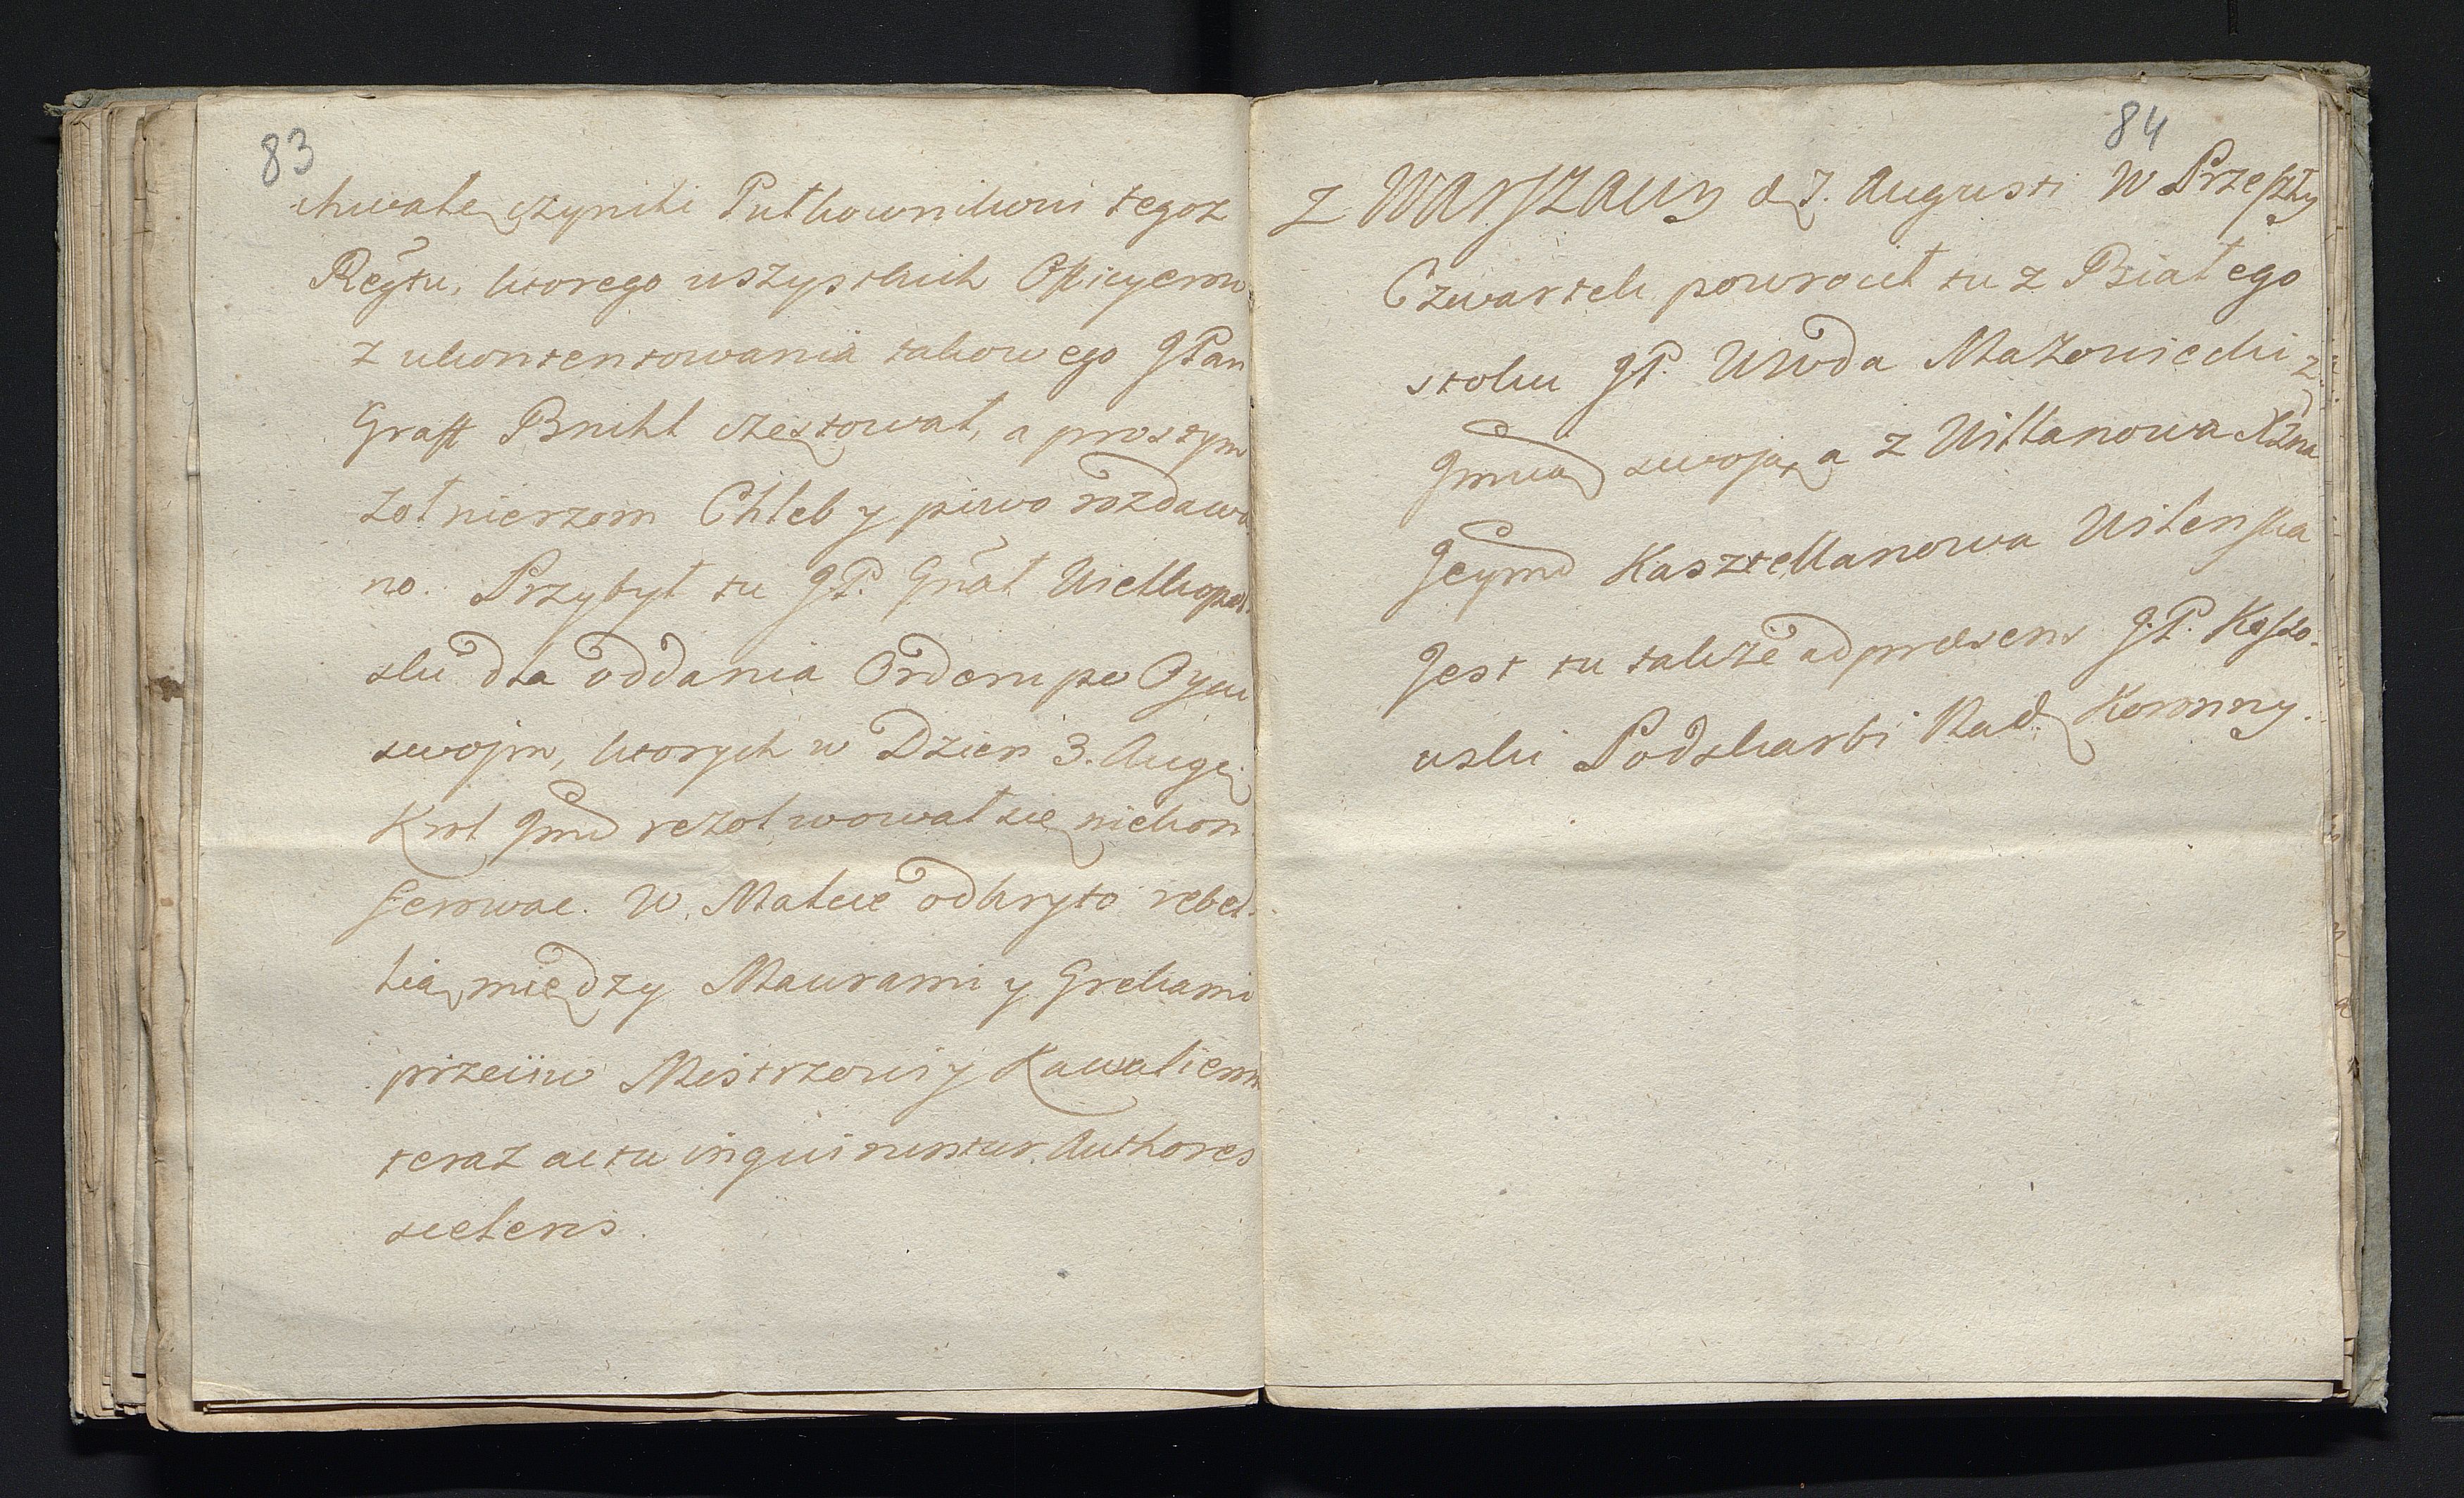 83
chwałę czynili Pułkownikowi tegoż
Regtu, ktorego wszystkich Officyerow
z ukontentowania takowego JPan
Graff Bruhl częstował, a prostym
żołnierzom Chleb y piwo rozdawa
no. Przybył tu J.P. Gnał Wielkopol
ski dla oddania Orderu po Oycu
swojm, ktorych w Dzien 3. Aug.
Krol Jmc rezolwował się niekon
ferować. W Malcie odkryto rebel
lią między Maurami y Grekami
przeciw Mistrzowi y Kawalierom
teraz actu inquiruntur Authores
sceleris.
84
Z Warszawy d. 7. Augusti W Przeszły
Czwartek powrocił tu z Białego
stoku J.P. Wwda Mazowiecki z
Jmcią swoją, a z Willanowa Xżna
Jeymc Kasztellanowa Wilenska
Jest tu także ad præsens J.P. Kosso
wski Podskarbi Nad. Koronny.